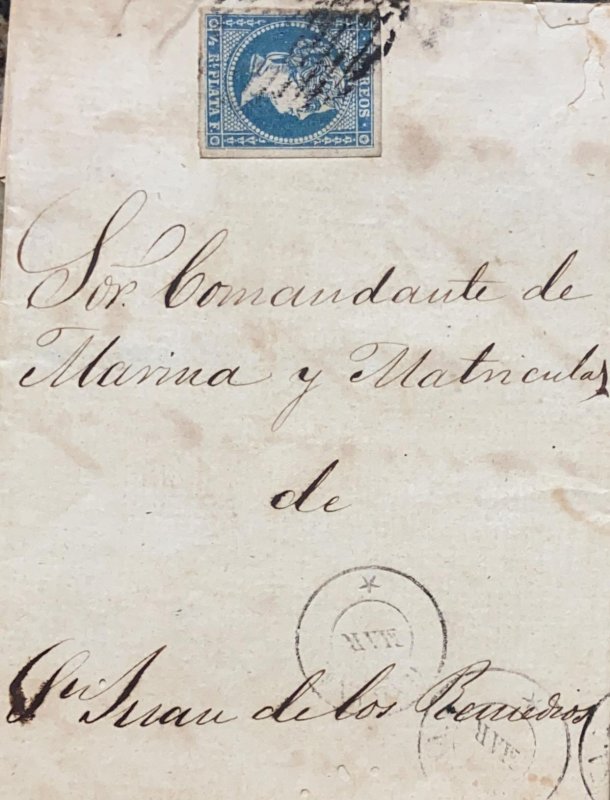 CORREOS
½ Rl. PLATA F.
Sor. Comandante de
Marina y Matriculas
de
MAR
Sn Juan de los Remedios
MAR